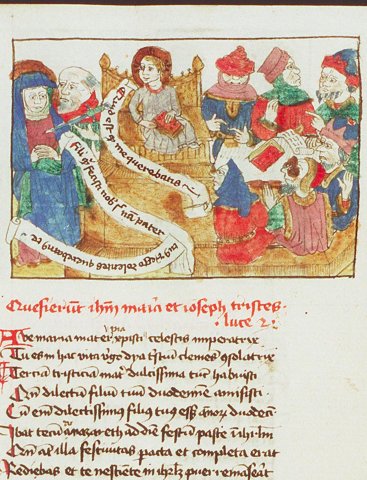 Quid est quod me querebatis
fili quid fecisti nobis pater
tuus et ego dolentes querebamus te
Quesierunt ihm maria et ioseph tristes
luce 2
Ave maria mater xpisti celestis imperatrix
Tu es in hac vita virgo pia clemens
Tertia tristicia mater dulcissima tunc habuisti
Cum dilectum filium tuum duodennem amisisti
Cum enim dilectissimus filius tuus esset annorum duodecim
Ibat tecum ad diem festum pasce in ihrlm
Cum illa festivitas pacta et completa erat
Rediebas et te nesciente in ihrlm puer remaserat